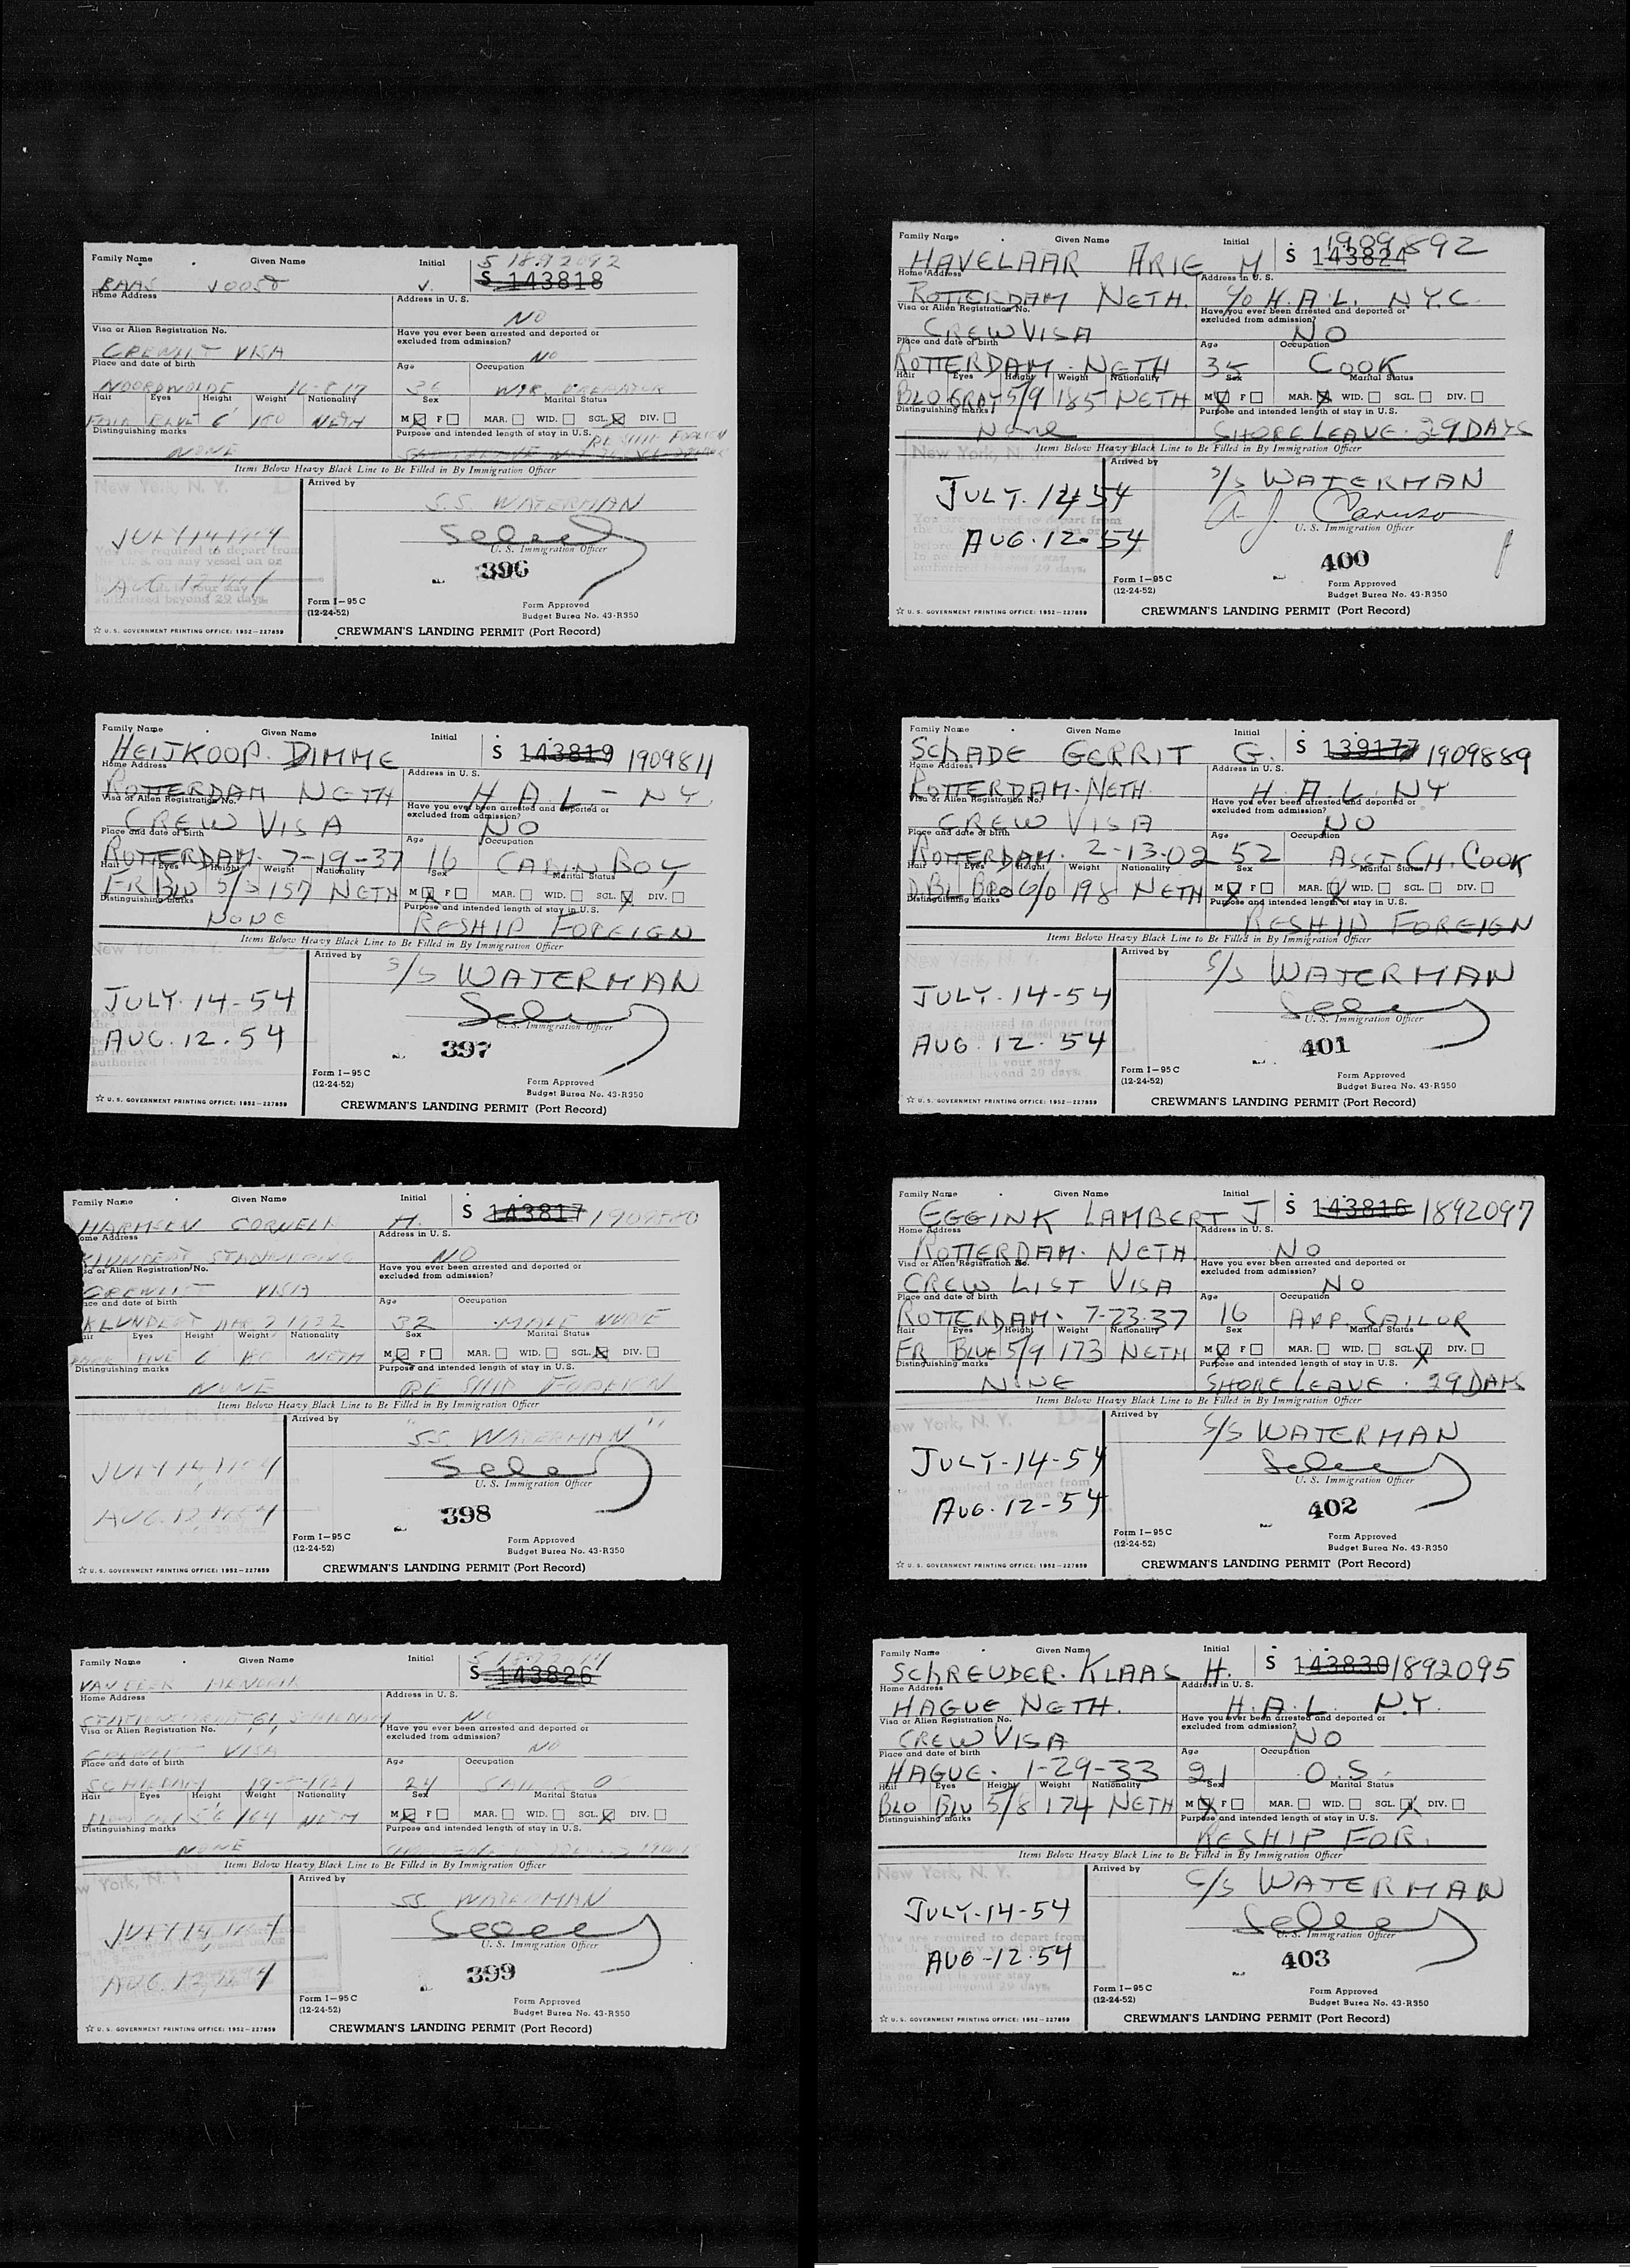 Family Name Given Name Initial S 1892092
S 143818
BAAS J.
Home Address Address in U. S.
NO
Visa or Alien Registration No. Have you ever been arrested and deported or excluded from admission?
CREWLIST VISA NO
Place and date of birth Age Occupation
NOORDWOLDE 16-8-17 36 OPERATOR
Hair Eyes Height Weight Nationality Sex Marital Status
FAIR 6' 180 NETH M ☒ F ☐ MAR. ☐ WID. ☐ SGL. ☒ DIV. ☐
Distinguishing marks Purpose and intended length of stay in U.S.
NONE RE SHIP FOREIGN
Items Below Heavy Black Line to Be Filled in By Immigration Officer
New York, N. Y. Arrived by
S.S. WATERMAN
JULY 14 1954
You are required to depart from
the U. S. on any vessel on or
AUG 12 1954
authorized beyond 29 days.
U. S. Immigration Officer
396
Form I-95 C
(12-24-52)
Form Approved
Budget Bureau No. 43-R350
☆ U. S. GOVERNMENT PRINTING OFFICE: 1952—227859 CREWMAN'S LANDING PERMIT (Port Record)
Family Name Given Name Initial
HEIJKOOP. DIMME S 143819 1909811
Home Address Address in U. S.
ROTTERDAM NETH H.A.L - NY.
Visa or Alien Registration No. Have you ever been arrested and deported or excluded from admission?
CREW VISA NO
Place and date of birth Age Occupation
ROTTERDAM. 7-19-37 16 CABIN BOY
Hair Eyes Height Weight Nationality Sex Marital Status
FR BLU 5/3 157 NETH M ☒ F ☐ MAR. ☐ WID. ☐ SGL. ☒ DIV. ☐
Distinguishing marks Purpose and intended length of stay in U.S.
NONE RESHIP FOREIGN
Items Below Heavy Black Line to Be Filled in By Immigration Officer
New York, Arrived by
S/S WATERMAN
JULY-14-54
AUG. 12. 54
authorized 29 days.
U. S. Immigration Officer
397
Form I-95 C
(12-24-52)
Form Approved
Budget Bureau No. 43-R350
☆ U. S. GOVERNMENT PRINTING OFFICE: 1952—227859 CREWMAN'S LANDING PERMIT (Port Record)
Family Name Given Name Initial
HARMSEN H. S 143817
Home Address Address in U. S.
KLUNDERT NO
Visa or Alien Registration No. Have you ever been arrested and deported or excluded from admission?
CREWLIST VISA
Place and date of birth Age Occupation
KLUNDERT 32 MALE NURSE
Hair Eyes Height Weight Nationality Sex Marital Status
6 NETH M ☒ F ☐ MAR. ☐ WID. ☐ SGL. ☒ DIV. ☐
Distinguishing marks Purpose and intended length of stay in U.S.
NONE RE SHIP FOREIGN
Items Below Heavy Black Line to Be Filled in By Immigration Officer
Arrived by
"S.S. WATERMAN"
JULY 14, 1954
AUG. 12 1954
U. S. Immigration Officer
398
Form I-95 C
(12-24-52)
Form Approved
Budget Bureau No. 43-R350
☆ U. S. GOVERNMENT PRINTING OFFICE: 1952—227859 CREWMAN'S LANDING PERMIT (Port Record)
Family Name Given Name Initial
S 143826
HENDRIK
Home Address Address in U. S.
61, SCHIEDAM NO
Visa or Alien Registration No. Have you ever been arrested and deported or excluded from admission?
CREWLIST VISA NO
Place and date of birth Age Occupation
SCHIEDAM 24
Hair Eyes Height Weight Nationality Sex Marital Status
5'6 164 NETH M ☒ F ☐ MAR. ☐ WID. ☐ SGL. ☒ DIV. ☐
Distinguishing marks Purpose and intended length of stay in U.S.
NONE
Items Below Heavy Black Line to Be Filled in By Immigration Officer
New York, N. Y. Arrived by
SS. WATERMAN
JULY 14, 1954
AUG. 12, 1954
U. S. Immigration Officer
399
Form I-95 C
(12-24-52)
Form Approved
Budget Bureau No. 43-R350
☆ U. S. GOVERNMENT PRINTING OFFICE: 1952—227859 CREWMAN'S LANDING PERMIT (Port Record)
Family Name Given Name Initial 1909892
HAVELAAR ARIE M S 143824
Home Address Address in U. S.
ROTTERDAM NETH. C/O H.A.L. N.Y.C.
Visa or Alien Registration No. Have you ever been arrested and deported or excluded from admission?
CREW VISA NO
Place and date of birth Age Occupation
ROTTERDAM - NETH 35 COOK
Hair Eyes Height Weight Nationality Sex Marital Status
BLO GRAY 5/9 185 NETH M ☒ F ☐ MAR. ☒ WID. ☐ SGL. ☐ DIV. ☐
Distinguishing marks Purpose and intended length of stay in U.S.
None SHORE LEAVE. 29 DAYS
Items Below Heavy Black Line to Be Filled in By Immigration Officer
New York, N. Arrived by
S/S WATERMAN
JULY. 14-54 A. J. Caruso
You are required to depart from
U. S. Immigration Officer
AUG. 12. 54
authorized beyond 29 days.
400
Form I-95 C
(12-24-52)
Form Approved
Budget Bureau No. 43-R350
☆ U. S. GOVERNMENT PRINTING OFFICE: 1952—227859 CREWMAN'S LANDING PERMIT (Port Record)
Family Name Given Name Initial
SCHADE GERRIT G. S 139177 1909889
Home Address Address in U. S.
ROTTERDAM. NETH. H.A.L. NY
Visa or Alien Registration No. Have you ever been arrested and deported or excluded from admission?
CREW VISA NO
Place and date of birth Age Occupation
ROTTERDAM. 2-13-02 52 ASST. CH. COOK
Hair Eyes Height Weight Nationality Sex Marital Status
D.BL BRO 6/0 198 NETH M ☒ F ☐ MAR. ☒ WID. ☐ SGL. ☐ DIV. ☐
Distinguishing marks Purpose and intended length of stay in U.S.
RESHIP FOREIGN
Items Below Heavy Black Line to Be Filled in By Immigration Officer
New York, N. Y. Arrived by
S/S WATERMAN
JULY-14-54
AUG. 12. 54
U. S. Immigration Officer
401
Form I-95 C
(12-24-52)
Form Approved
Budget Bureau No. 43-R350
☆ U. S. GOVERNMENT PRINTING OFFICE: 1952—227859 CREWMAN'S LANDING PERMIT (Port Record)
Family Name Given Name Initial
EGGINK LAMBERT J S 143816 1892097
Home Address Address in U. S.
ROTTERDAM. NETH. NO
Visa or Alien Registration No. Have you ever been arrested and deported or excluded from admission?
CREW LIST VISA NO
Place and date of birth Age Occupation
ROTTERDAM. 7-23-37 16 APP. SAILOR
Hair Eyes Height Weight Nationality Sex Marital Status
FR BLUE 5/9 173 NETH M ☒ F ☐ MAR. ☐ WID. ☐ SGL. ☒ DIV. ☐
Distinguishing marks Purpose and intended length of stay in U.S.
NONE SHORE LEAVE. 29 DAYS
Items Below Heavy Black Line to Be Filled in By Immigration Officer
New York, N. Y. Arrived by
S/S WATERMAN
JULY-14-54
AUG. 12-54
U. S. Immigration Officer
402
Form I-95 C
(12-24-52)
Form Approved
Budget Bureau No. 43-R350
☆ U. S. GOVERNMENT PRINTING OFFICE: 1952—227859 CREWMAN'S LANDING PERMIT (Port Record)
Family Name Given Name Initial
SCHREUDER. KLAAS H. S 143830 1892095
Home Address Address in U. S.
HAGUE NETH. H.A.L. N.Y.
Visa or Alien Registration No. Have you ever been arrested and deported or excluded from admission?
CREW VISA NO
Place and date of birth Age Occupation
HAGUE. 1-29-33 21 O.S.
Hair Eyes Height Weight Nationality Sex Marital Status
BLO BLU 5/8 174 NETH M ☒ F ☐ MAR. ☐ WID. ☐ SGL. ☒ DIV. ☐
Distinguishing marks Purpose and intended length of stay in U.S.
RESHIP FOR.
Items Below Heavy Black Line to Be Filled in By Immigration Officer
New York, N. Y. Arrived by
S/S WATERMAN
JULY-14-54
You are required to depart from
AUG-12.54
U. S. Immigration Officer
403
Form I-95 C
(12-24-52)
Form Approved
Budget Bureau No. 43-R350
☆ U. S. GOVERNMENT PRINTING OFFICE: 1952—227859 CREWMAN'S LANDING PERMIT (Port Record)